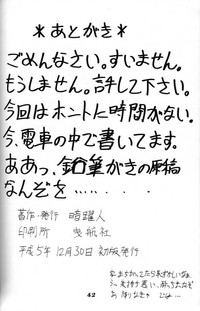 ＊あとがき＊
ごめんなさい。すいません。
もうしません。許して下さい。
今回はホントに時間がない。
今、電車の中で書いてます。
ああっ、鉛筆がきの原稿
なんぞを‥‥‥‥
著作・発行　晴躍人
印刷所　曳航社
平成5年12月30日 初版発行
42